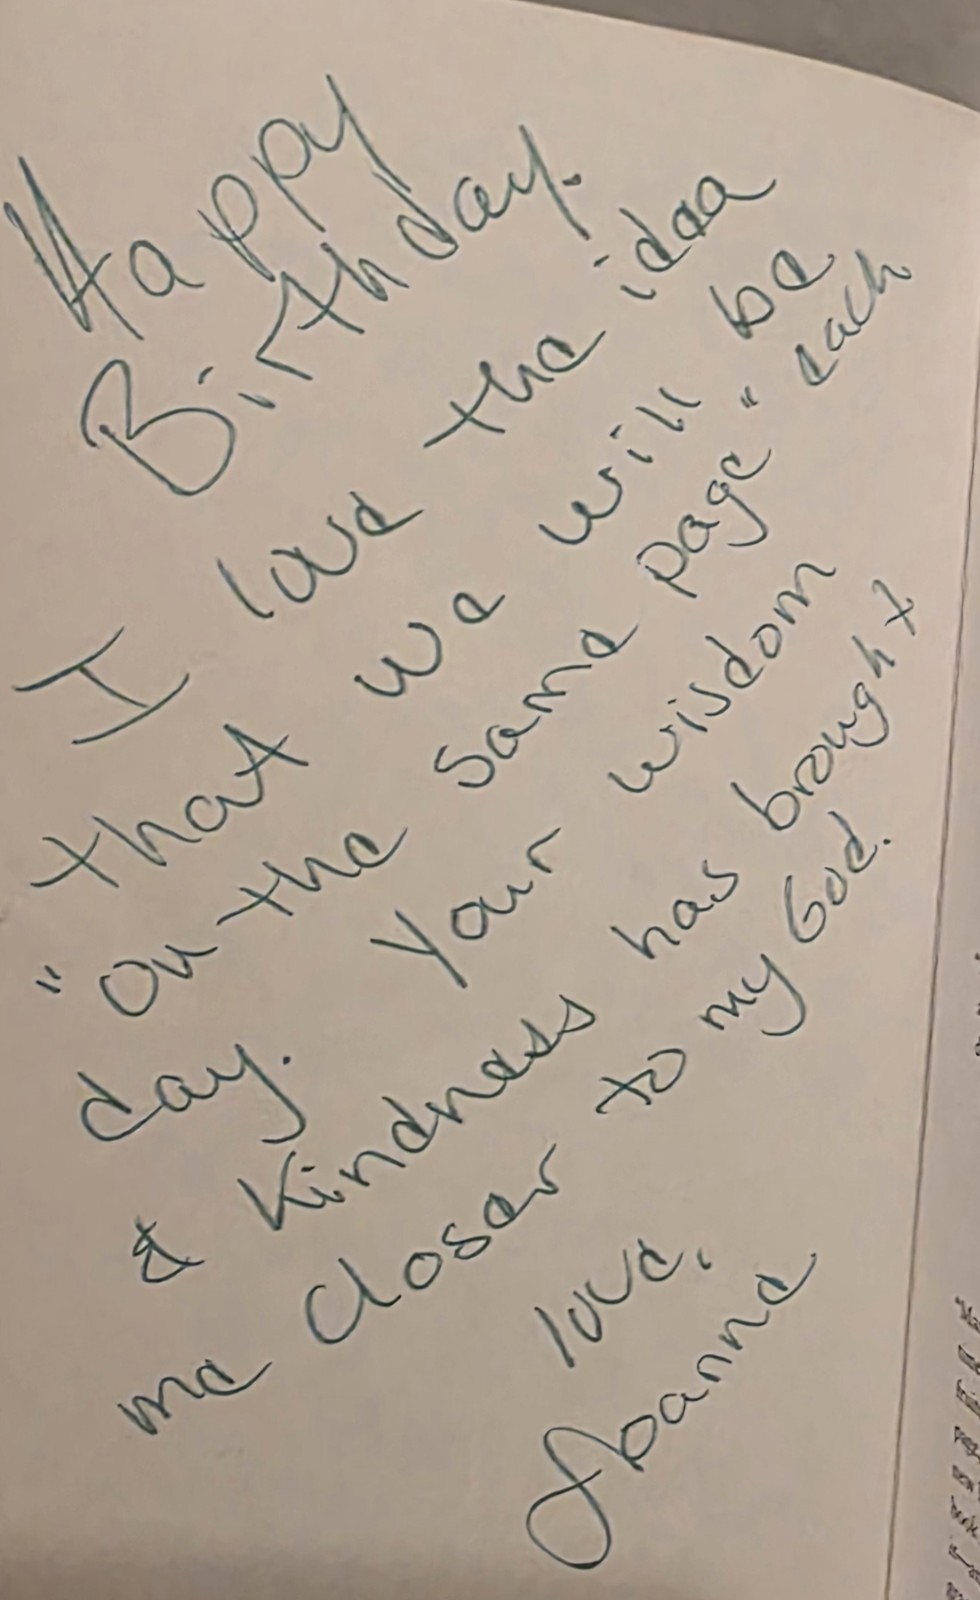 Happy
Birthday.
I love the idea
that we will be
"on the same page" each
day. Your wisdom
& Kindness has brought
me closer to my God.
love,
Joanne